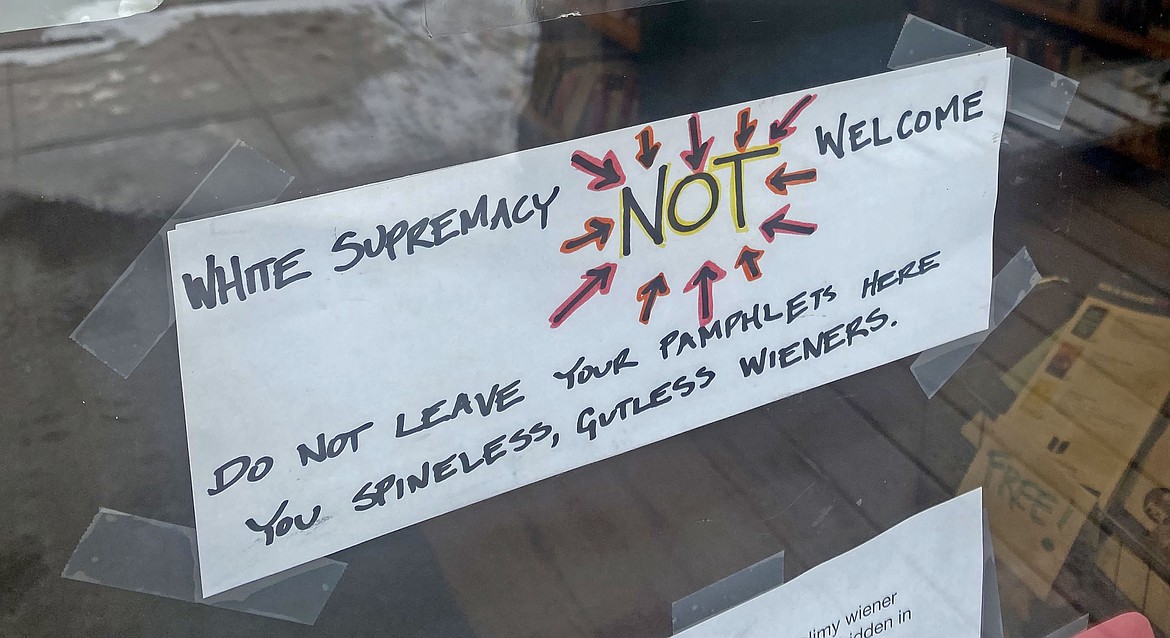 WHITE SUPREMACY NOT WELCOME
DO NOT LEAVE YOUR PAMPHLETS HERE
YOU SPINELESS, GUTLESS WIENERS.
FREE!
wiener
in